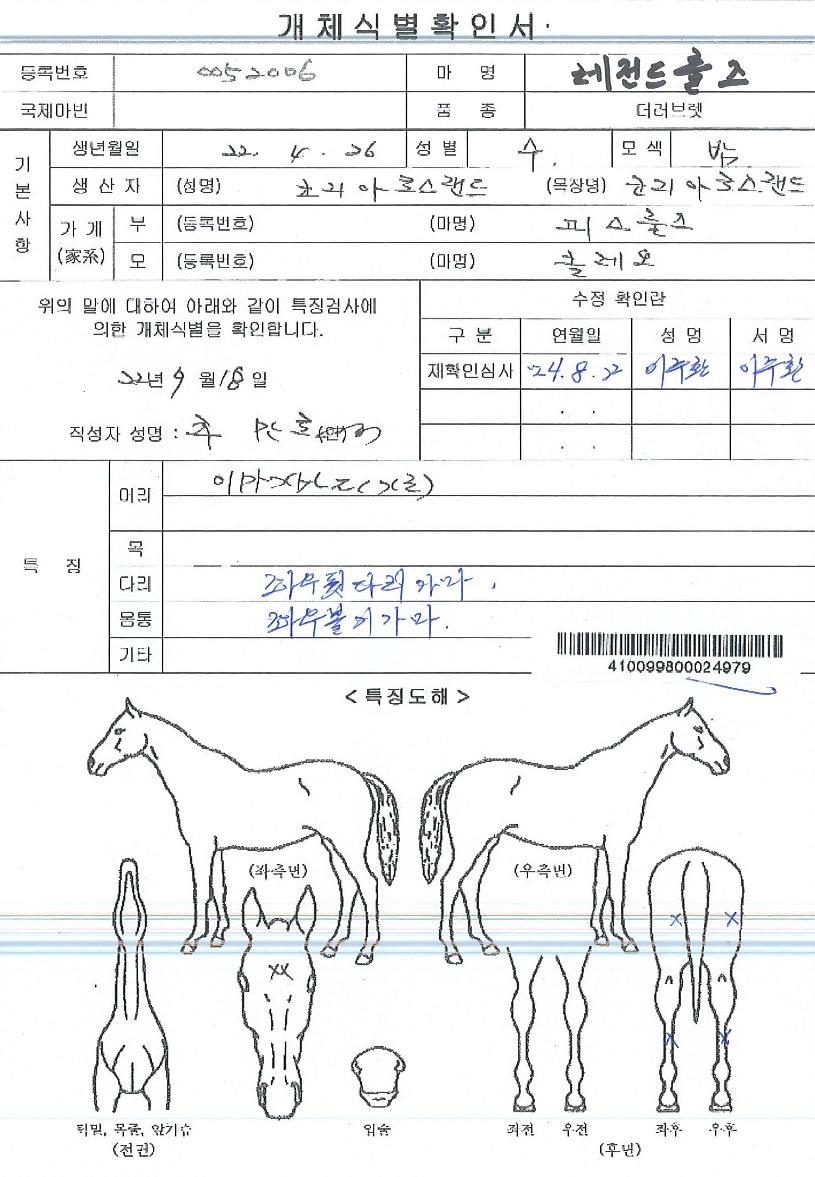 개체식별확인서
등록번호 0052006 마 명 레전드룰즈
국제마번 품 종 더러브렛
기본사항
생년월일 22. 4. 26 성별 수 모색 밤
생산자 (성명) (목장명)
가계(家系) 부 (등록번호) (마명) 피스룰즈
모 (등록번호) (마명)
위의 말에 대하여 아래와 같이 특징검사에
의한 개체식별을 확인합니다.
22년 9월 18일
작성자 성명 :
수정 확인란
구 분 연월일 성 명 서 명
재확인심사 24. 8. 22 이주환 이주환
. .
. .
특 징
머리
목
다리 좌우뒷다리가마.
몸통 좌우볼기가마.
기타
410099800024979
<특징도해>
(좌측면) (우측면)
턱밑, 목줄, 앞가슴 입술 좌전 우전 좌후 우후
(전권) (후면)